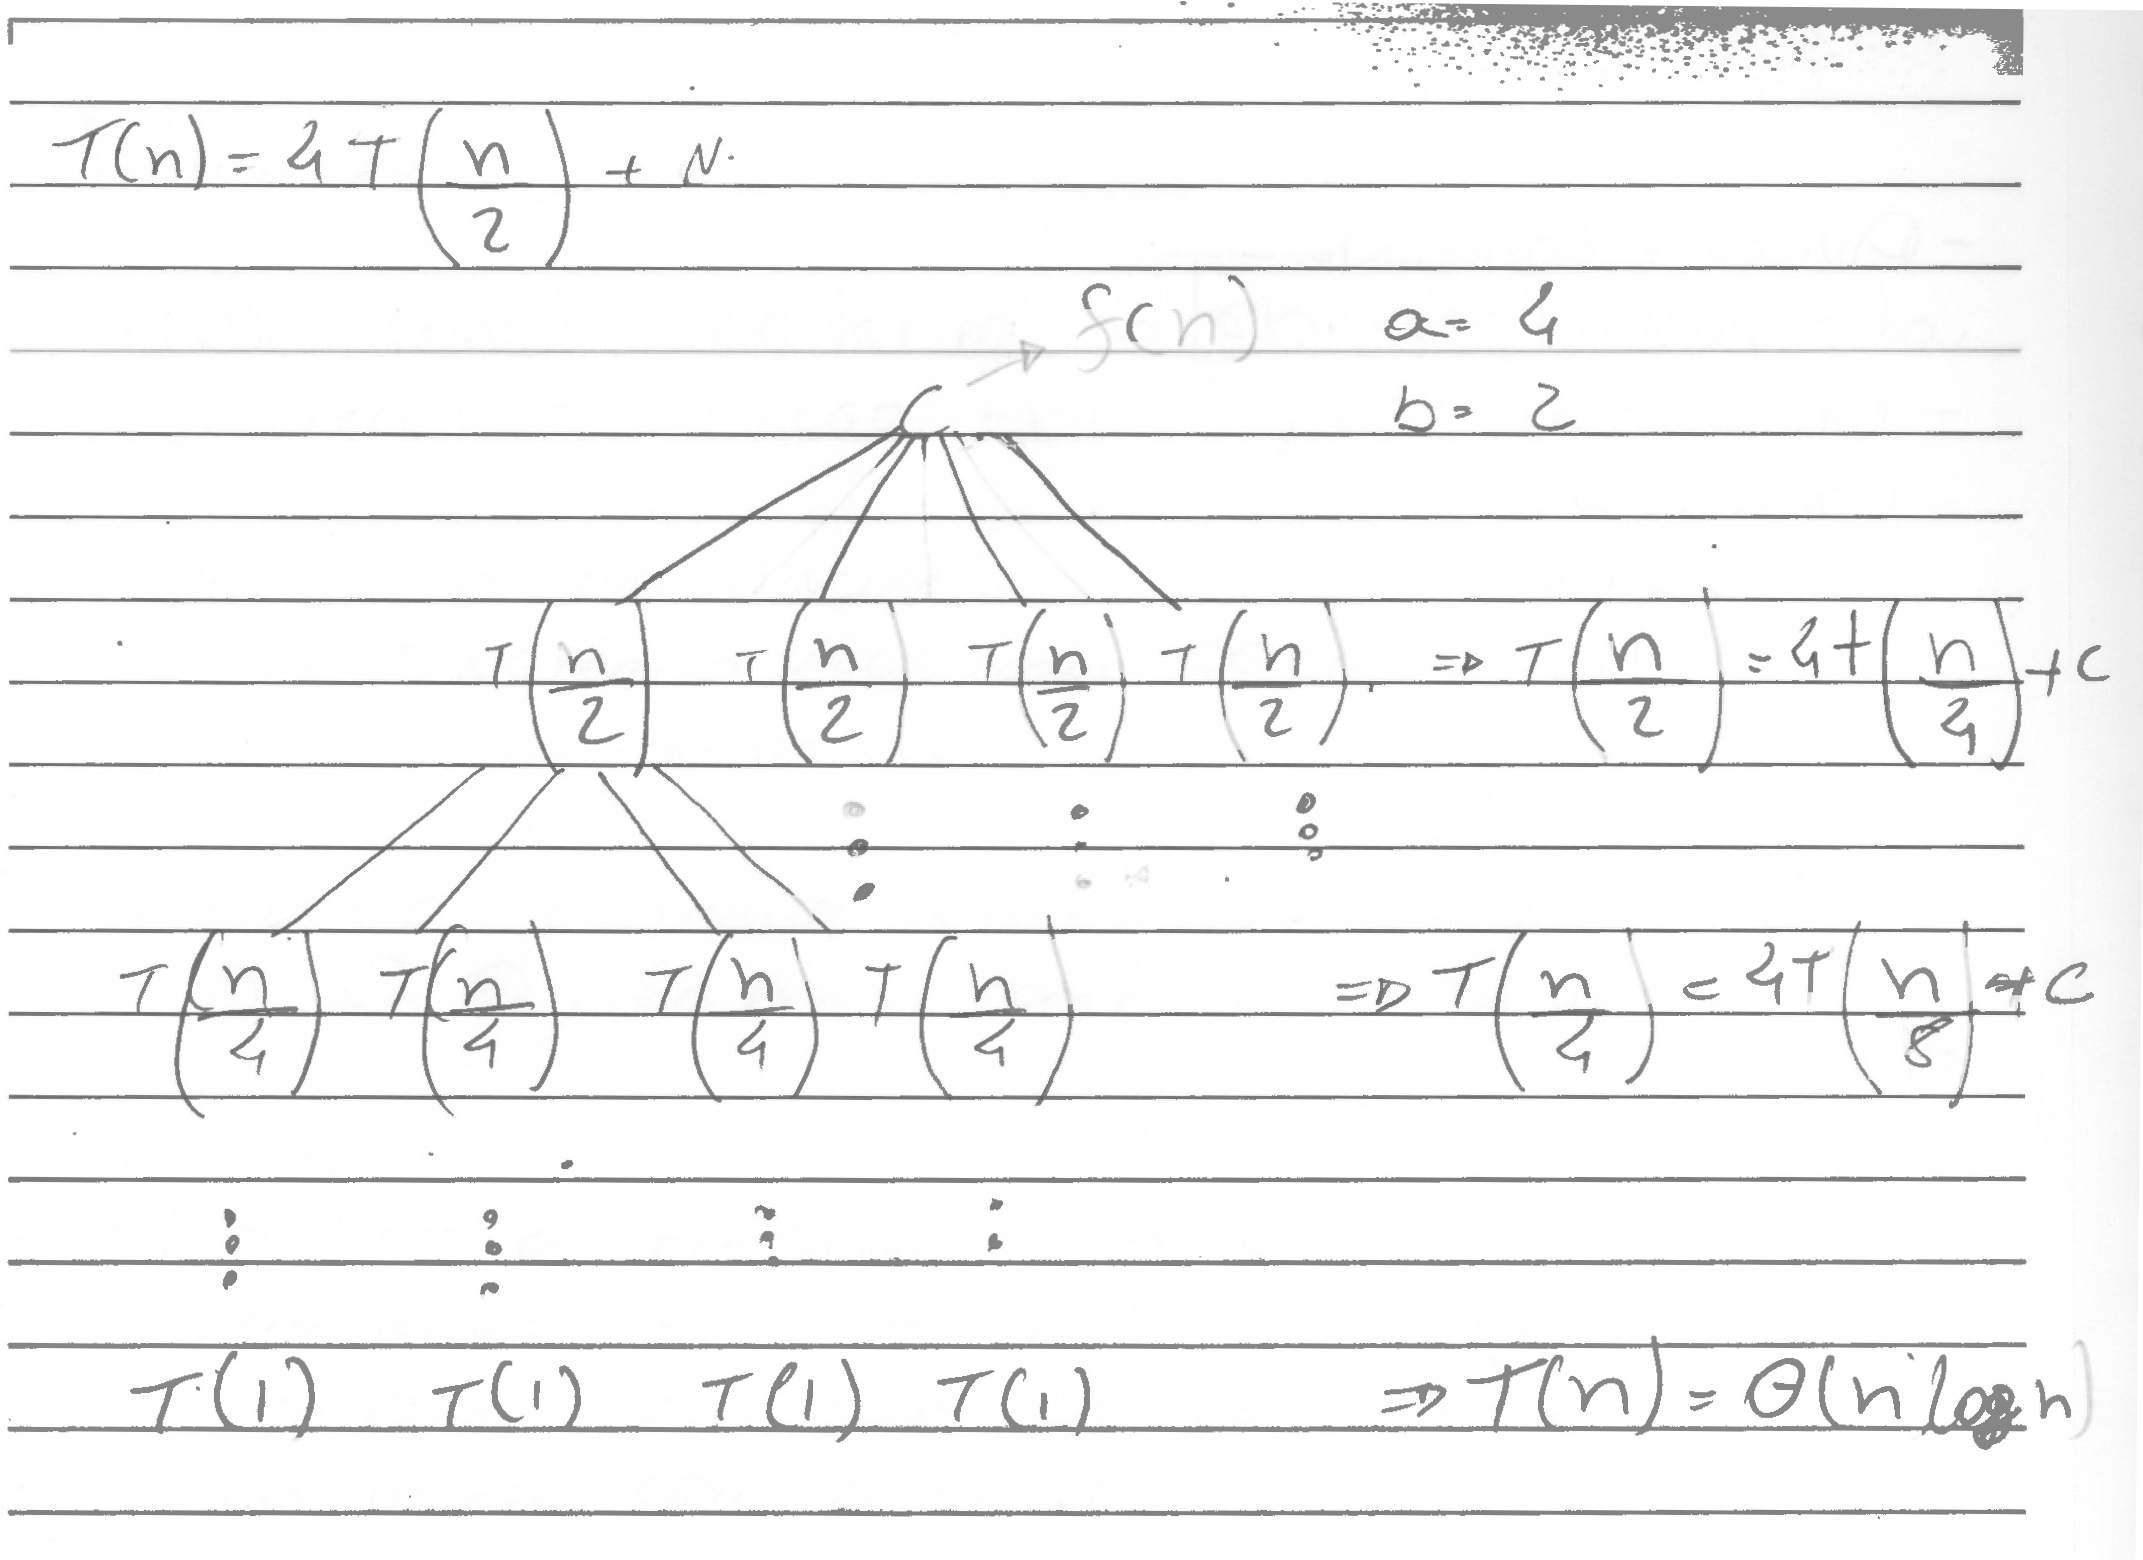 T(n) = 4T(n/2) + N
f(n) a = 4
C b = 2
T(n/2) T(n/2) T(n/2) T(n/2) => T(n/2) = 4T(n/4) + C
T(n/4) T(n/4) T(n/4) T(n/4) => T(n/4) = 4T(n/8) + C
T(1) T(1) T(1) T(1) => T(n) = Θ(n log n)